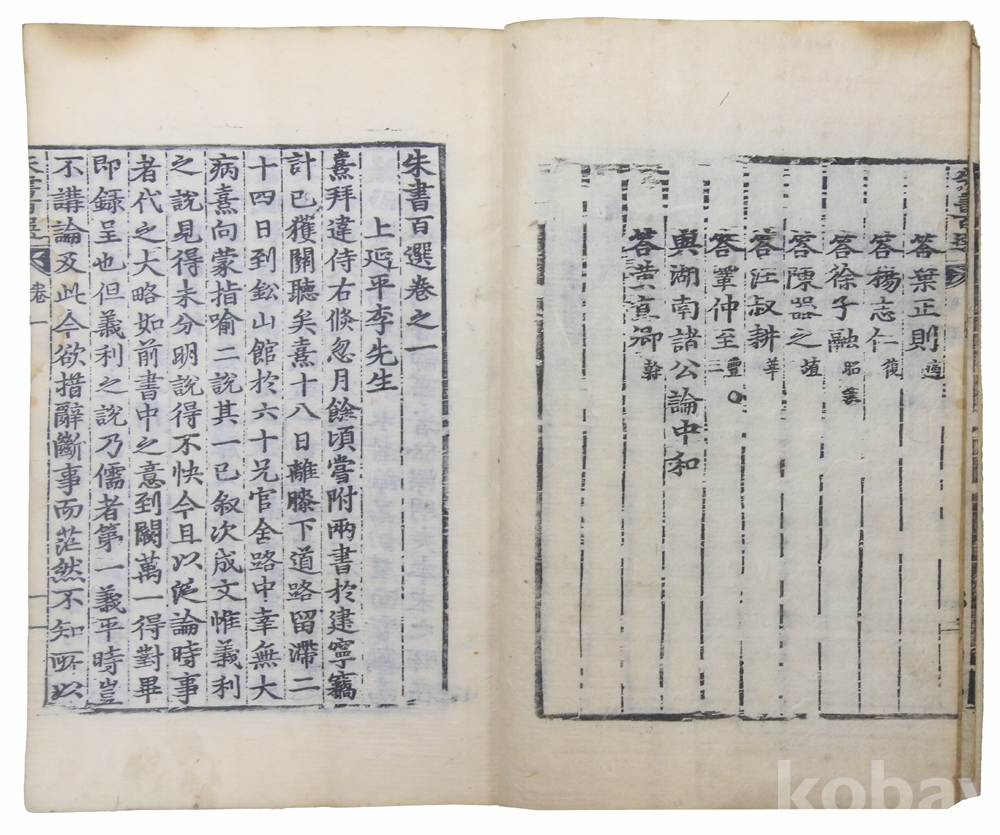 朱書百選
答葉正則 適
答楊志仁 復
答徐子融 昭
答陳器之 埴
答汪叔耕 莘
答鞏仲至 豐 三
與湖南諸公論中和
答黃直卿 榦
朱書百選卷之一
上延平李先生
熹拜違侍右倏忽月餘頃嘗附兩書於建寧竊
計已獲關聽矣熹十八日離膝下道路留滯二
十四日到鉛山館於六十兄官舍路中幸無大
病熹向蒙指喻二說其一已叙次成文惟義利
之說見得未分明說得不快今且以泛論時事
者代之大略如前書中之意到闕萬一得對畢
即錄呈也但義利之說乃儒者第一義平時豈
不講論及此今欲措辭斷事而茫然不知所以
朱書百選 卷一
一
kobay